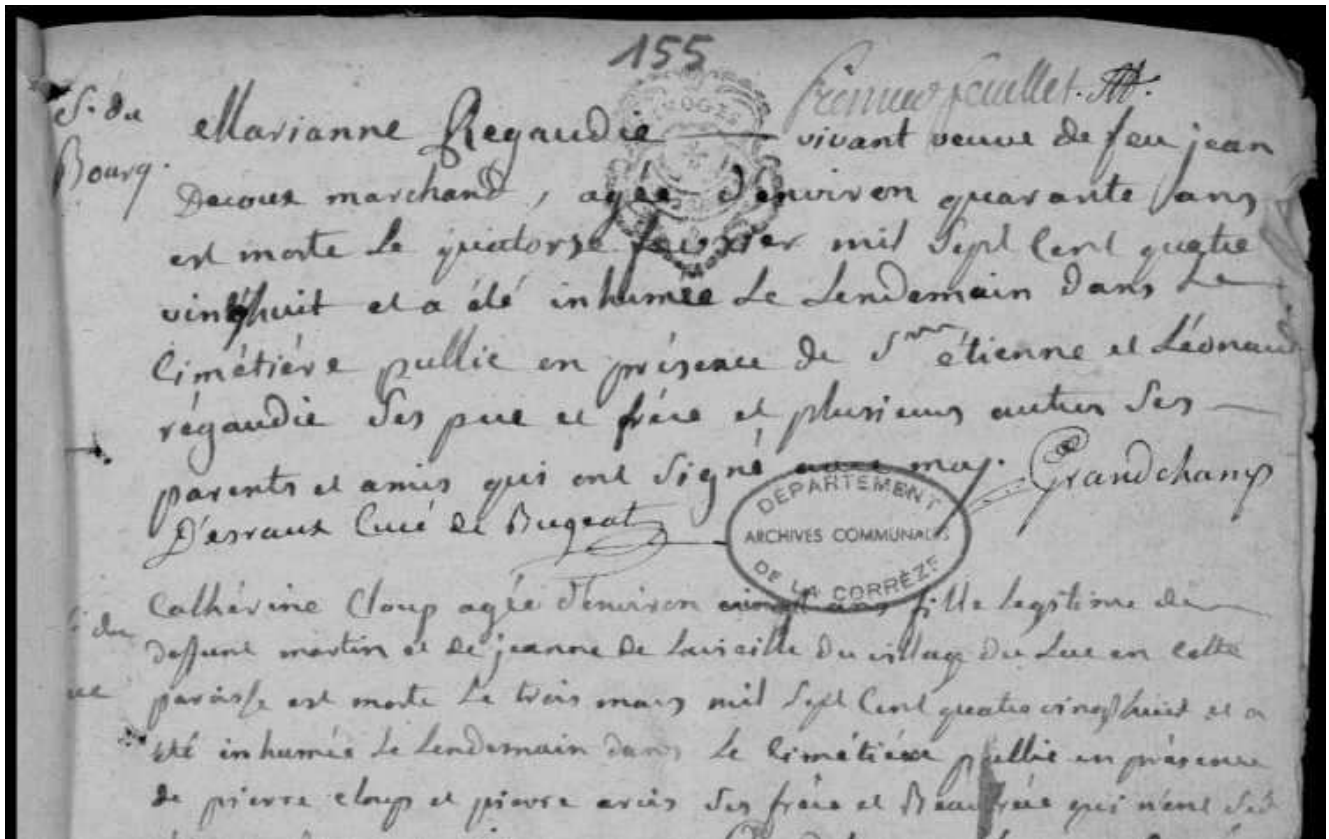 155
premier feuillet.
S. du
Bourg.
Marianne Regaudie vivant veuve de feu jean
Decoux marchand, agée d'environ quarante ans
est morte le quatorse fevrier mil sept cent quatre
vingthuit et a été inhumée le lendemain dans le
cimétiére pullic en présence de Srs étienne et Léonard
régaudie ses pere et frére et plusieurs autres ses
parents et amis qui ont signé avec moy. Grandchamp
D'esraux Curé de Bugeat
DEPARTEMENT
ARCHIVES COMMUNALES
DE LA CORRÈZE
Cathérine Cloup agée d'environ vingt ans fille legitime de
deffunt martin et de jeanne de Lavieille du village du Luc en cette
paroisse est morte le trois mars mil sept cent quatre vingthuit et a
été inhumée le lendemain dans le cimétiére pullic en présence
de pierre cloup et pierre ses frére et Beaufrére qui n'ont